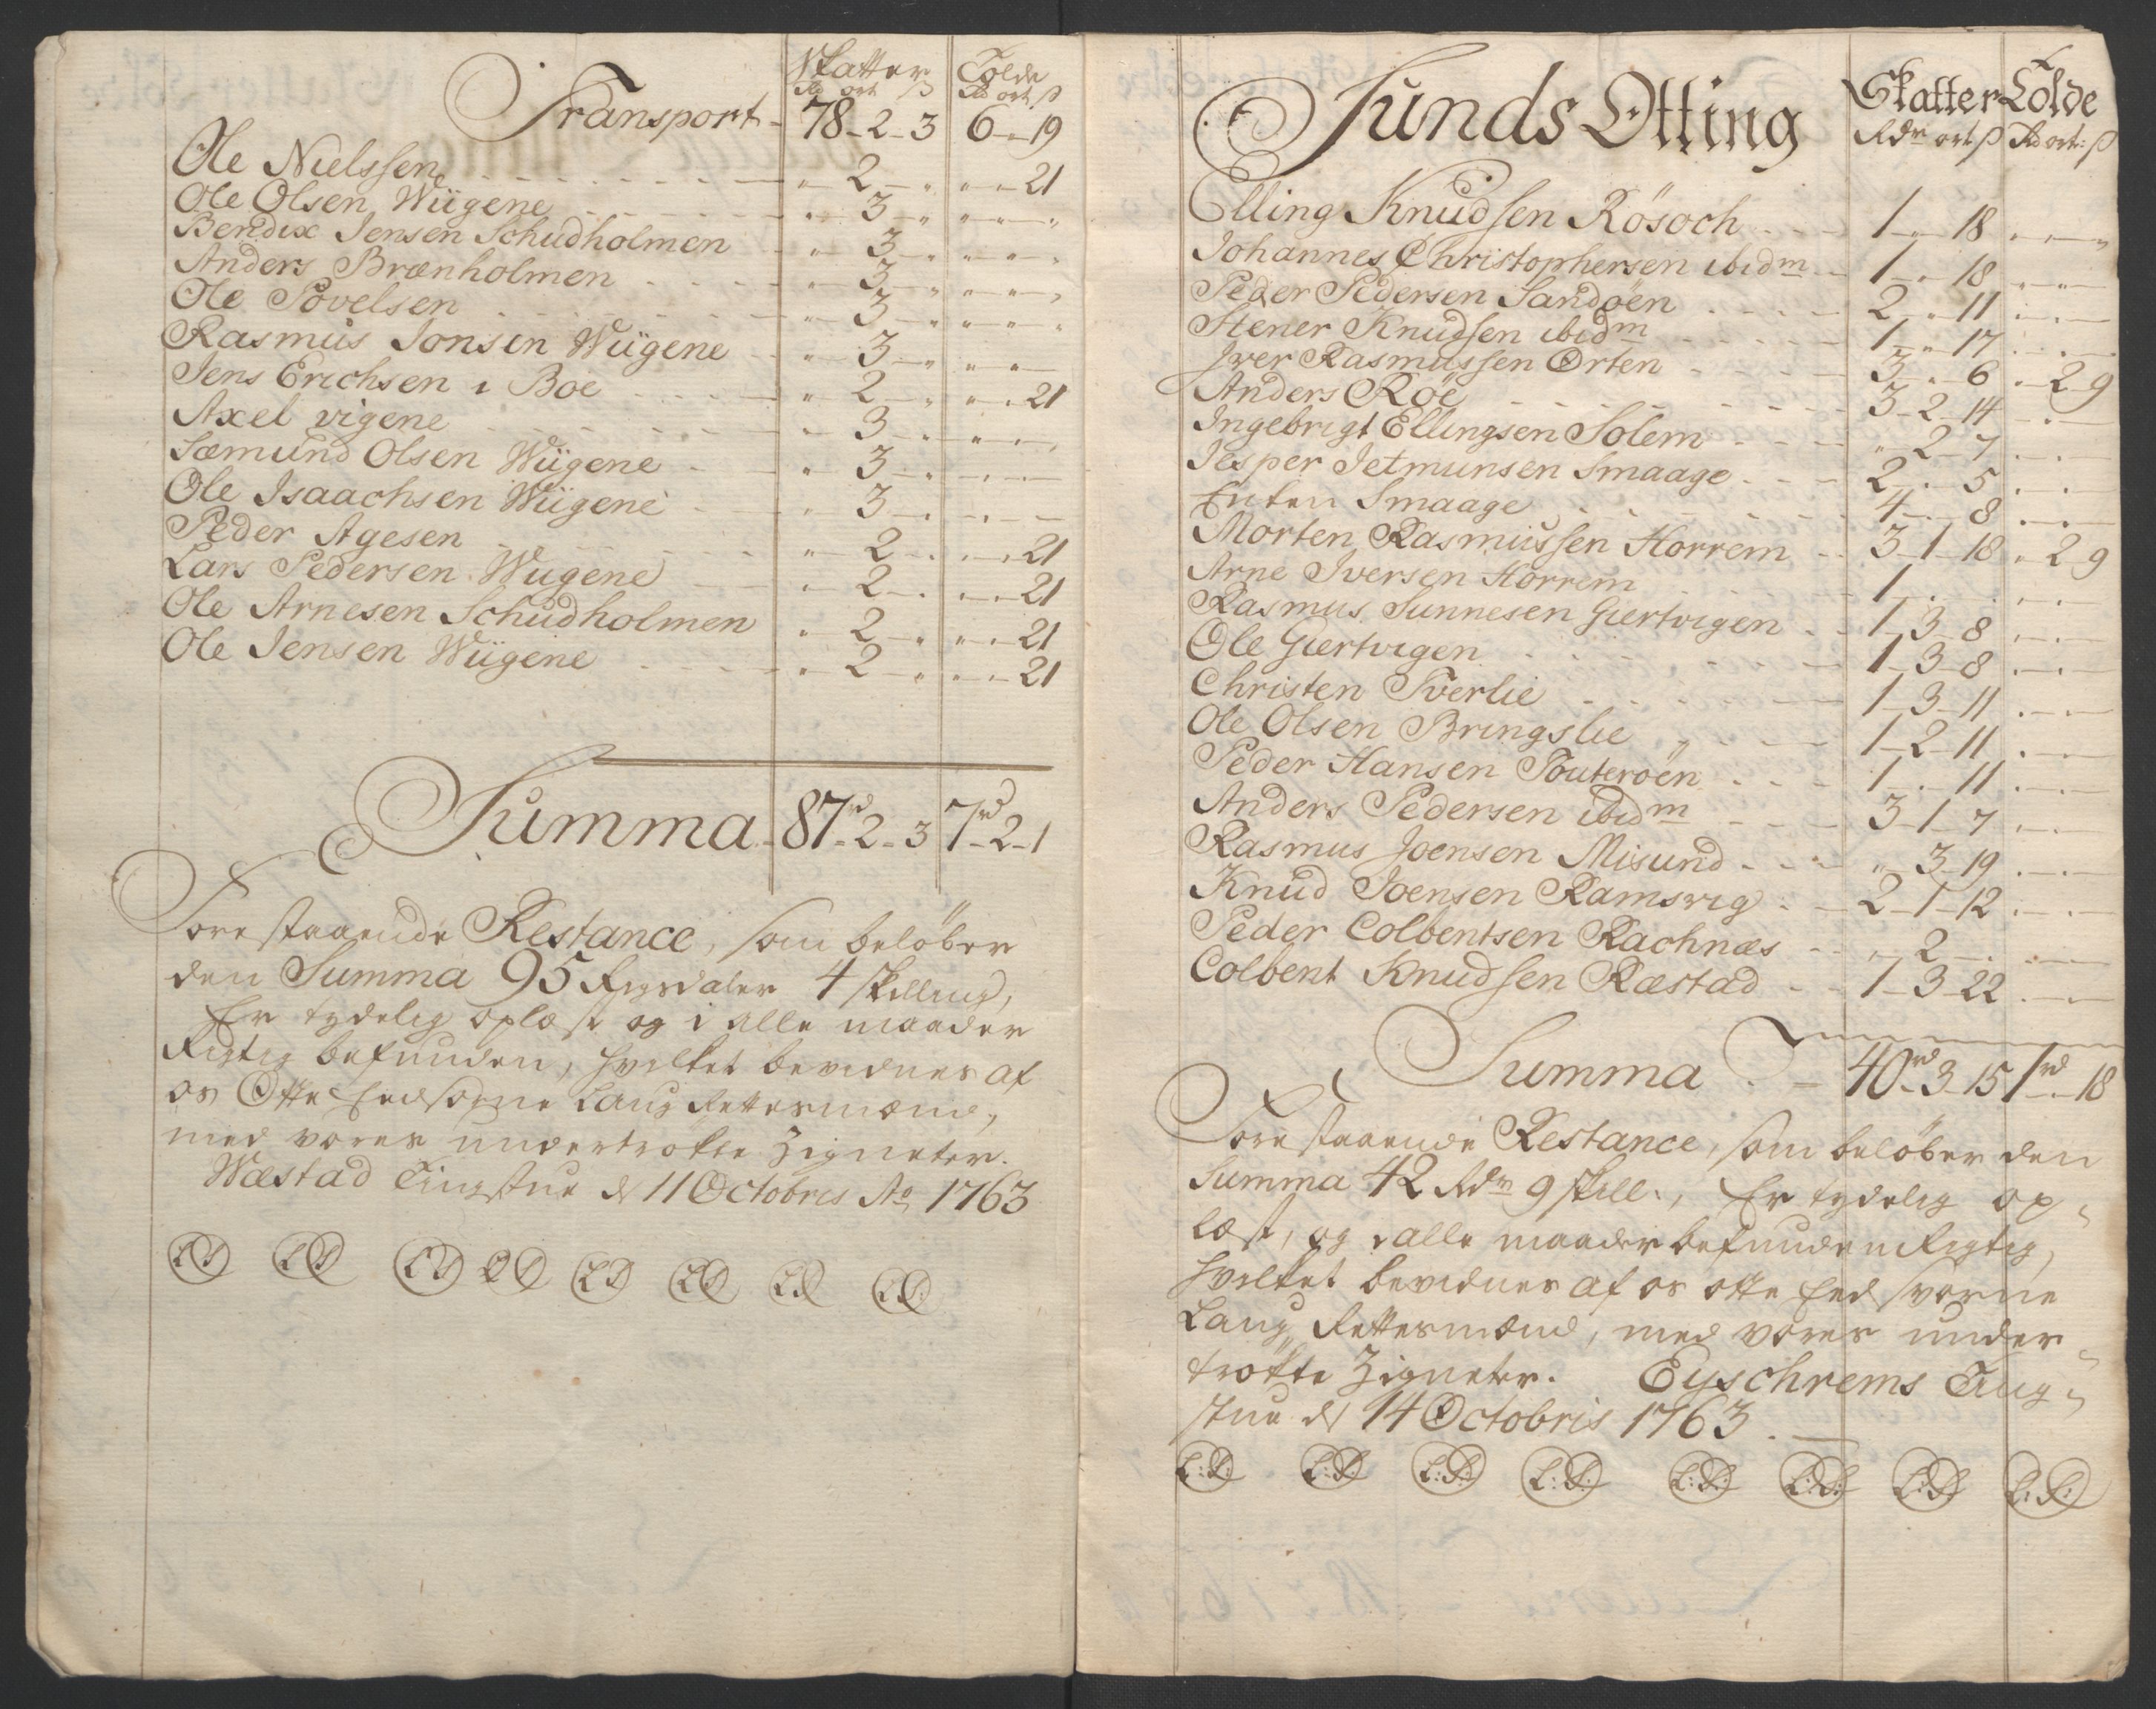 Skatter Tolde
Rd ort ß Rd ort ß
Transport - 78 - 2 - 3 6 - „ - 19
Ole Nielssen „ - 2 - „ „ - „ - 21
Ole Olsen Wiigene „ - 3 - „ „ - „ - „
Bendix Jensen Schudholmen „ - 3 - „ „ - „ - „
Anders Brænholmen „ - 3 - „ „ - „ - „
Ole Povelsen „ - 3 - „ „ - „ - „
Rasmus Jonsen Wiigene „ - 3 - „ „ - „ -
Jens Erichsen i Boe „ - 2 - „ „ - „ - 21
Axel vigene „ - 3 - „ „ - „ - „
Sæmund Olsen Wiigene „ - 3 - „ - „ -
Ole Isaachsen Wiigene „ - 3 - „ - „ -
Peder Agesen „ - 2 - „ „ - „ - 21
Lars Pedersen Wugene „ - 2 - „ „ - „ - 21
Ole Arnesen Schudholmen „ - 2 - „ „ - „ - 21
Ole Jensen Wiigene „ - 2 - „ „ - „ - 21
Summa - 87rd - 2 - 3 7rd - 2 - 1
Forestaaende Restance, som beløber
den Summa 95 Rigsdaler 4 skilling,
Er tydelig oplæst og i alle maader
Rigtig befunden, hvilket bevidnes af
os Otte Eedsorne Laug Rettesmænd,
med vores undertrøkte Zigneter.
Wæstad Tingstue d 11 Octobris Ao 1763
LS LS LS LS LS LS LS LS
Sunds Otting Skatter Tolde
Rdr ort ß Rd ort: ß
Elling Knudsen Rösoch 1 - „ - 18 „ - „ - „
Johannes Christophersen ibidm 1 - „ - 18 „ - „ -
Peder Pedersen Sandöen 2 - „ - 11 „ - „ -
Stener Knudsen ibidm 1 - „ - 17 „ - „ -
Iver Rasmussen Orten 3 - „ - 6 „ - 2 - 9
Anders Röe 3 - 2 - 14 - „ -
Ingebrigt Ellingsen Solem „ 2 - 7 „ - „ -
Jesper Jetmunsen Smaage 2 - „ - 5 „ - „
Enken Smaage 4 - „ - 8 „ - „ -
Morten Rasmussen Horrem 3 - 1 - 18 „ - 2 - 9
Arne Iversen Horrem 1 - „ - „ „ - „ -
Rasmus Sunnesen Giertvigen 1 - 3 - 8 „ - „ -
Ole Giertvigen 1 - 3 - 8 „ - „ -
Christen Tverlie 1 - 3 - 11 „ - „ -
Ole Olsen Bringslie 1 - 2 - 11 „ - „ -
Peder Hansen Touteröen 1 - „ - 11 „ - „ -
Anders Pedersen ibidm 3 - 1 - 7 „ - „ -
Rasmus Joensen Misund „ 3 - 19 „ - „ -
Knud Joensen Ramsvig 2 - 1 - 12 „ - „ -
Peder Colbentsen Rachnæs „ 2 - „ „ - „ -
Colbent Knudsen Ræstad 1 - 3 - 22 „ - „ -
Summa - 40rd - 3 - 15 1rd - „ - 18
Forestaaende Restance, som beløber den
Summa 42 Rdr 9 skill., Er tydelig op-
læst, og i alle maader befunden Rigtig,
hvilket bevidnes af os otte Eedsvorne
Laug Rettesmænd, med vores under-
trøkte Zigneter. Eyschrems Ting-
stue d 14 Octobris 1763.
L:S: L:S: L:S: L:S: L:S: L:S: L:S: L:S: